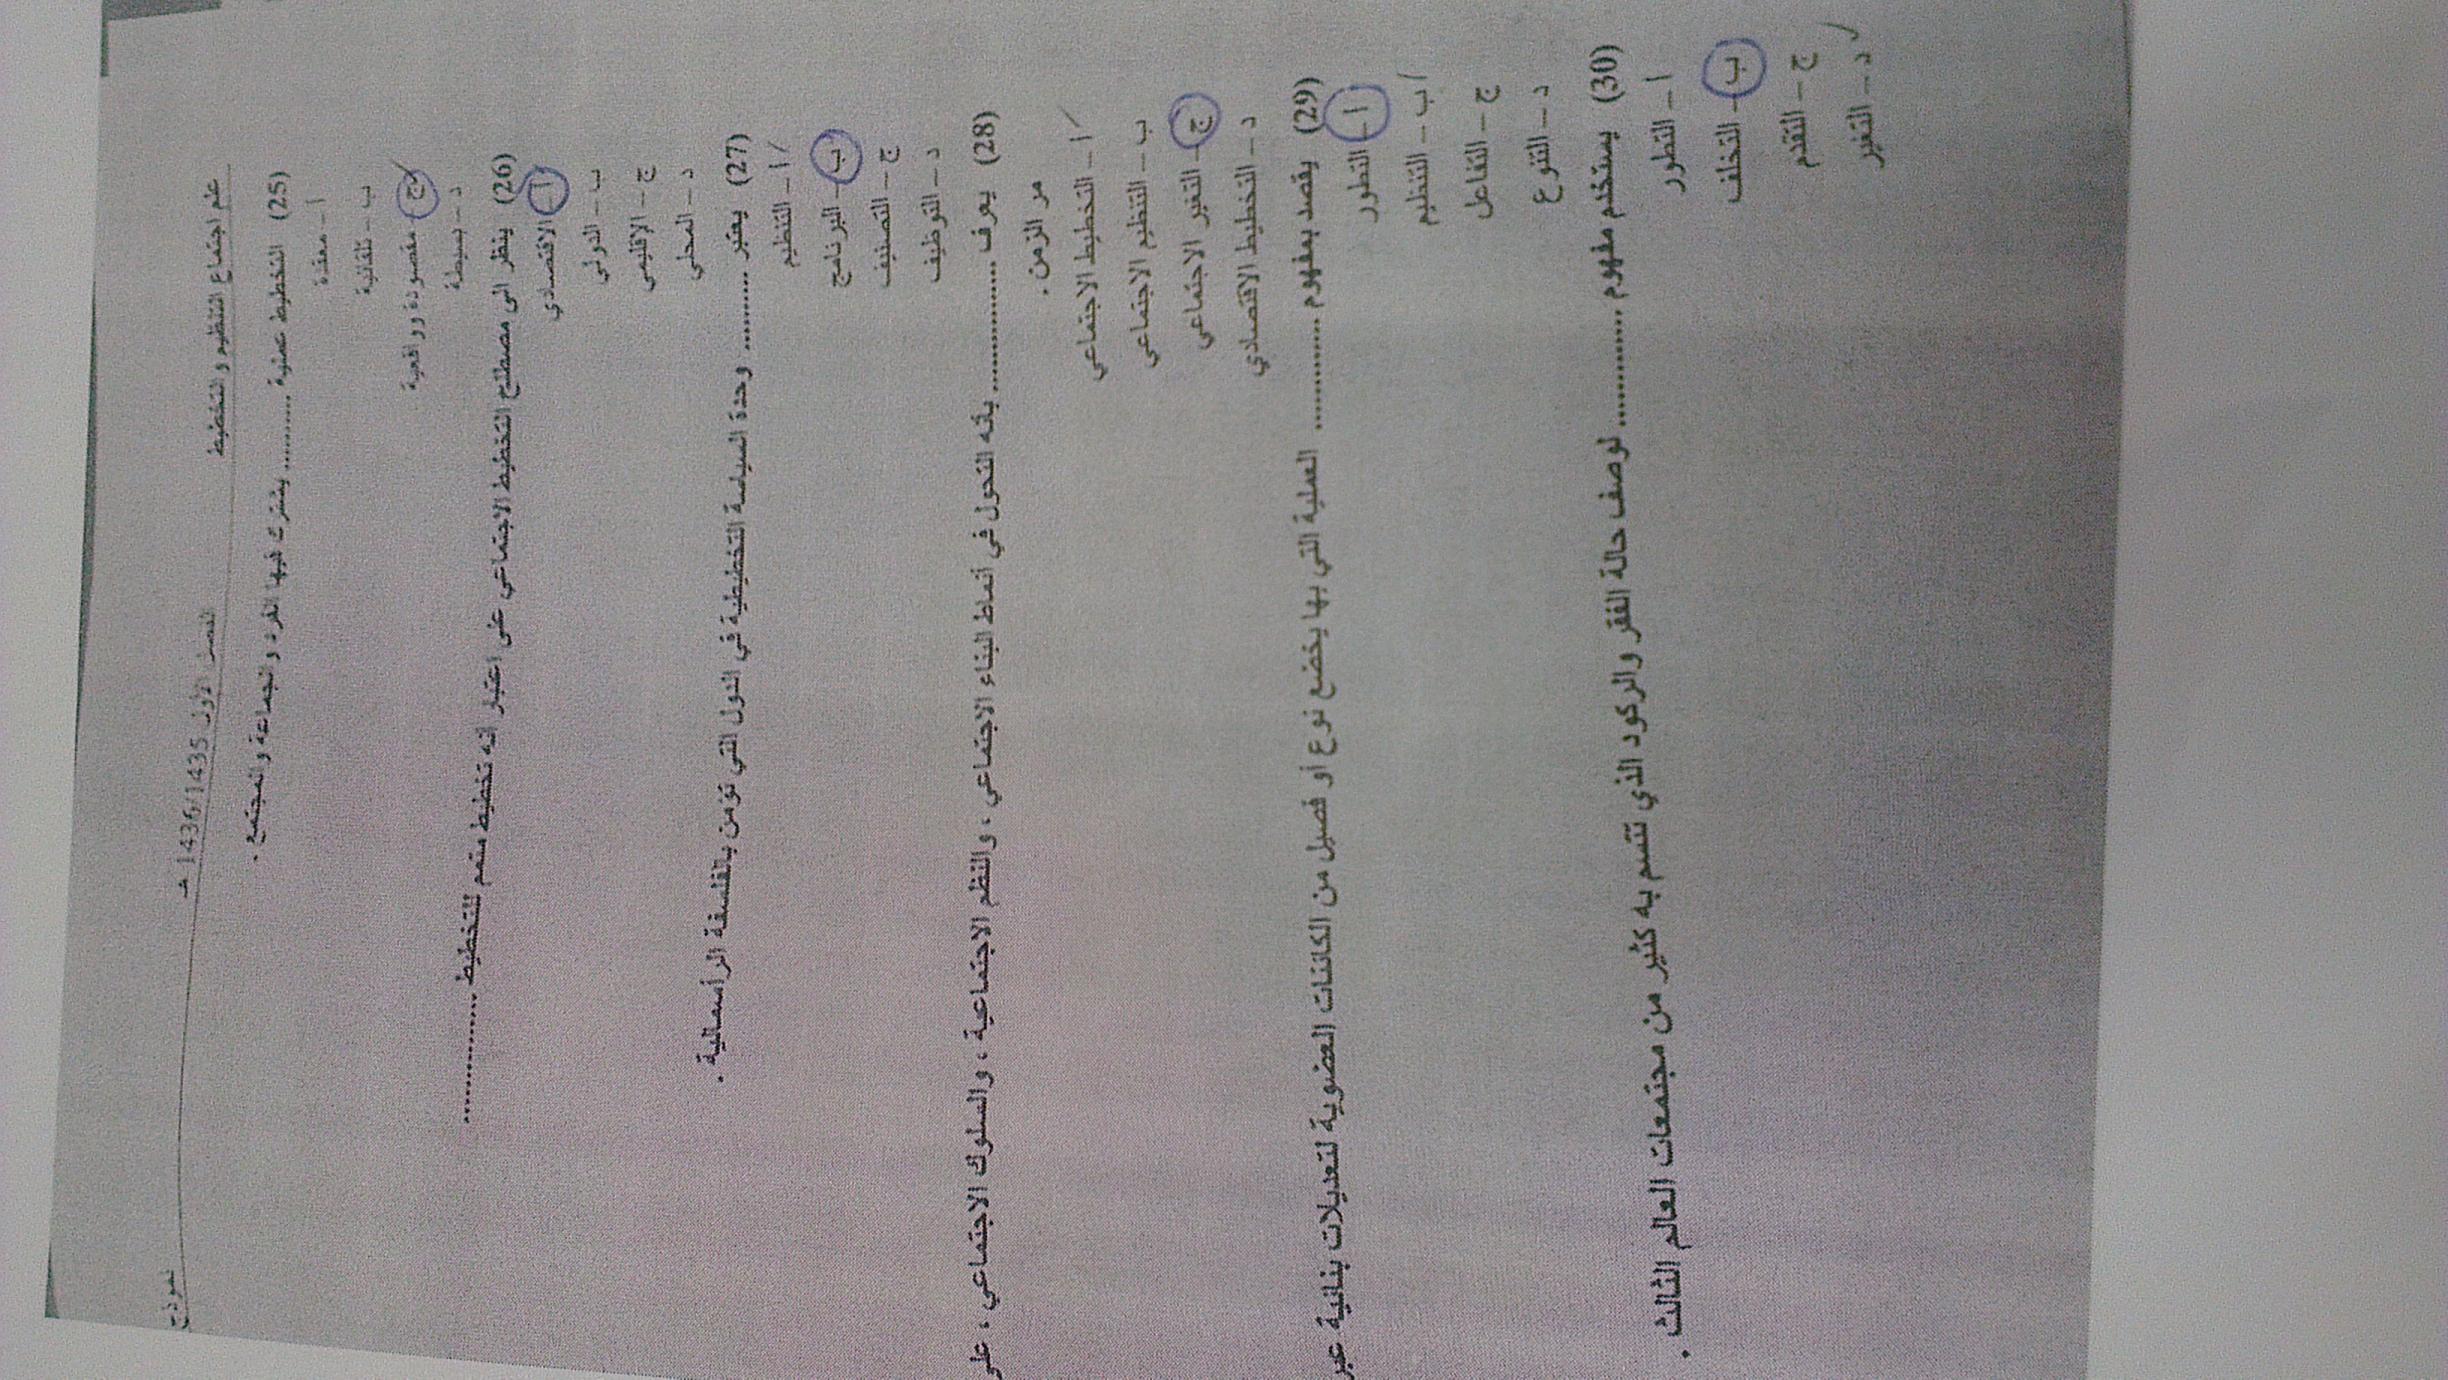 علم اجتماع التنظيم والتخطيط الفصل الأول 1436/1435 هـ نموذج
(25) التخطيط عملية .......... يشترك فيها الفرد والجماعة والمجتمع .
أ – معقدة
ب – تلقائية
ج – مقصودة وواقعية
د – بسيطة
(26) ينظر الى مصطلح التخطيط الاجتماعي على اعتبار انه تخطيط متمم للتخطيط ................
أ – الاقتصادي
ب – الدولي
ج – الإقليمي
د – المحلي
(27) يعتبر .......... وحدة السياسة التخطيطية في الدول التي تؤمن بالفلسفة الرأسمالية .
أ – التنظيم
ب – البرنامج
ج – التصنيف
د – التوظيف
(28) يعرف ................ بأنه التحول في أنماط البناء الاجتماعي ، والنظم الاجتماعية ، والسلوك الاجتماعي ، على
مر الزمن .
أ – التخطيط الاجتماعي
ب – التنظيم الاجتماعي
ج – التغير الاجتماعي
د – التخطيط الاقتصادي
(29) يقصد بمفهوم .............. العملية التي بها يخضع نوع أو فصيل من الكائنات العضوية لتعديلات بنائية عبر
أ – التطور
ب – التنظيم
ج – التفاعل
د – التنوع
(30) يستخدم مفهوم .............. لوصف حالة الفقر والركود الذي تتسم به كثير من مجتمعات العالم الثالث .
أ – التطور
ب – التخلف
ج – التقدم
د – التغير